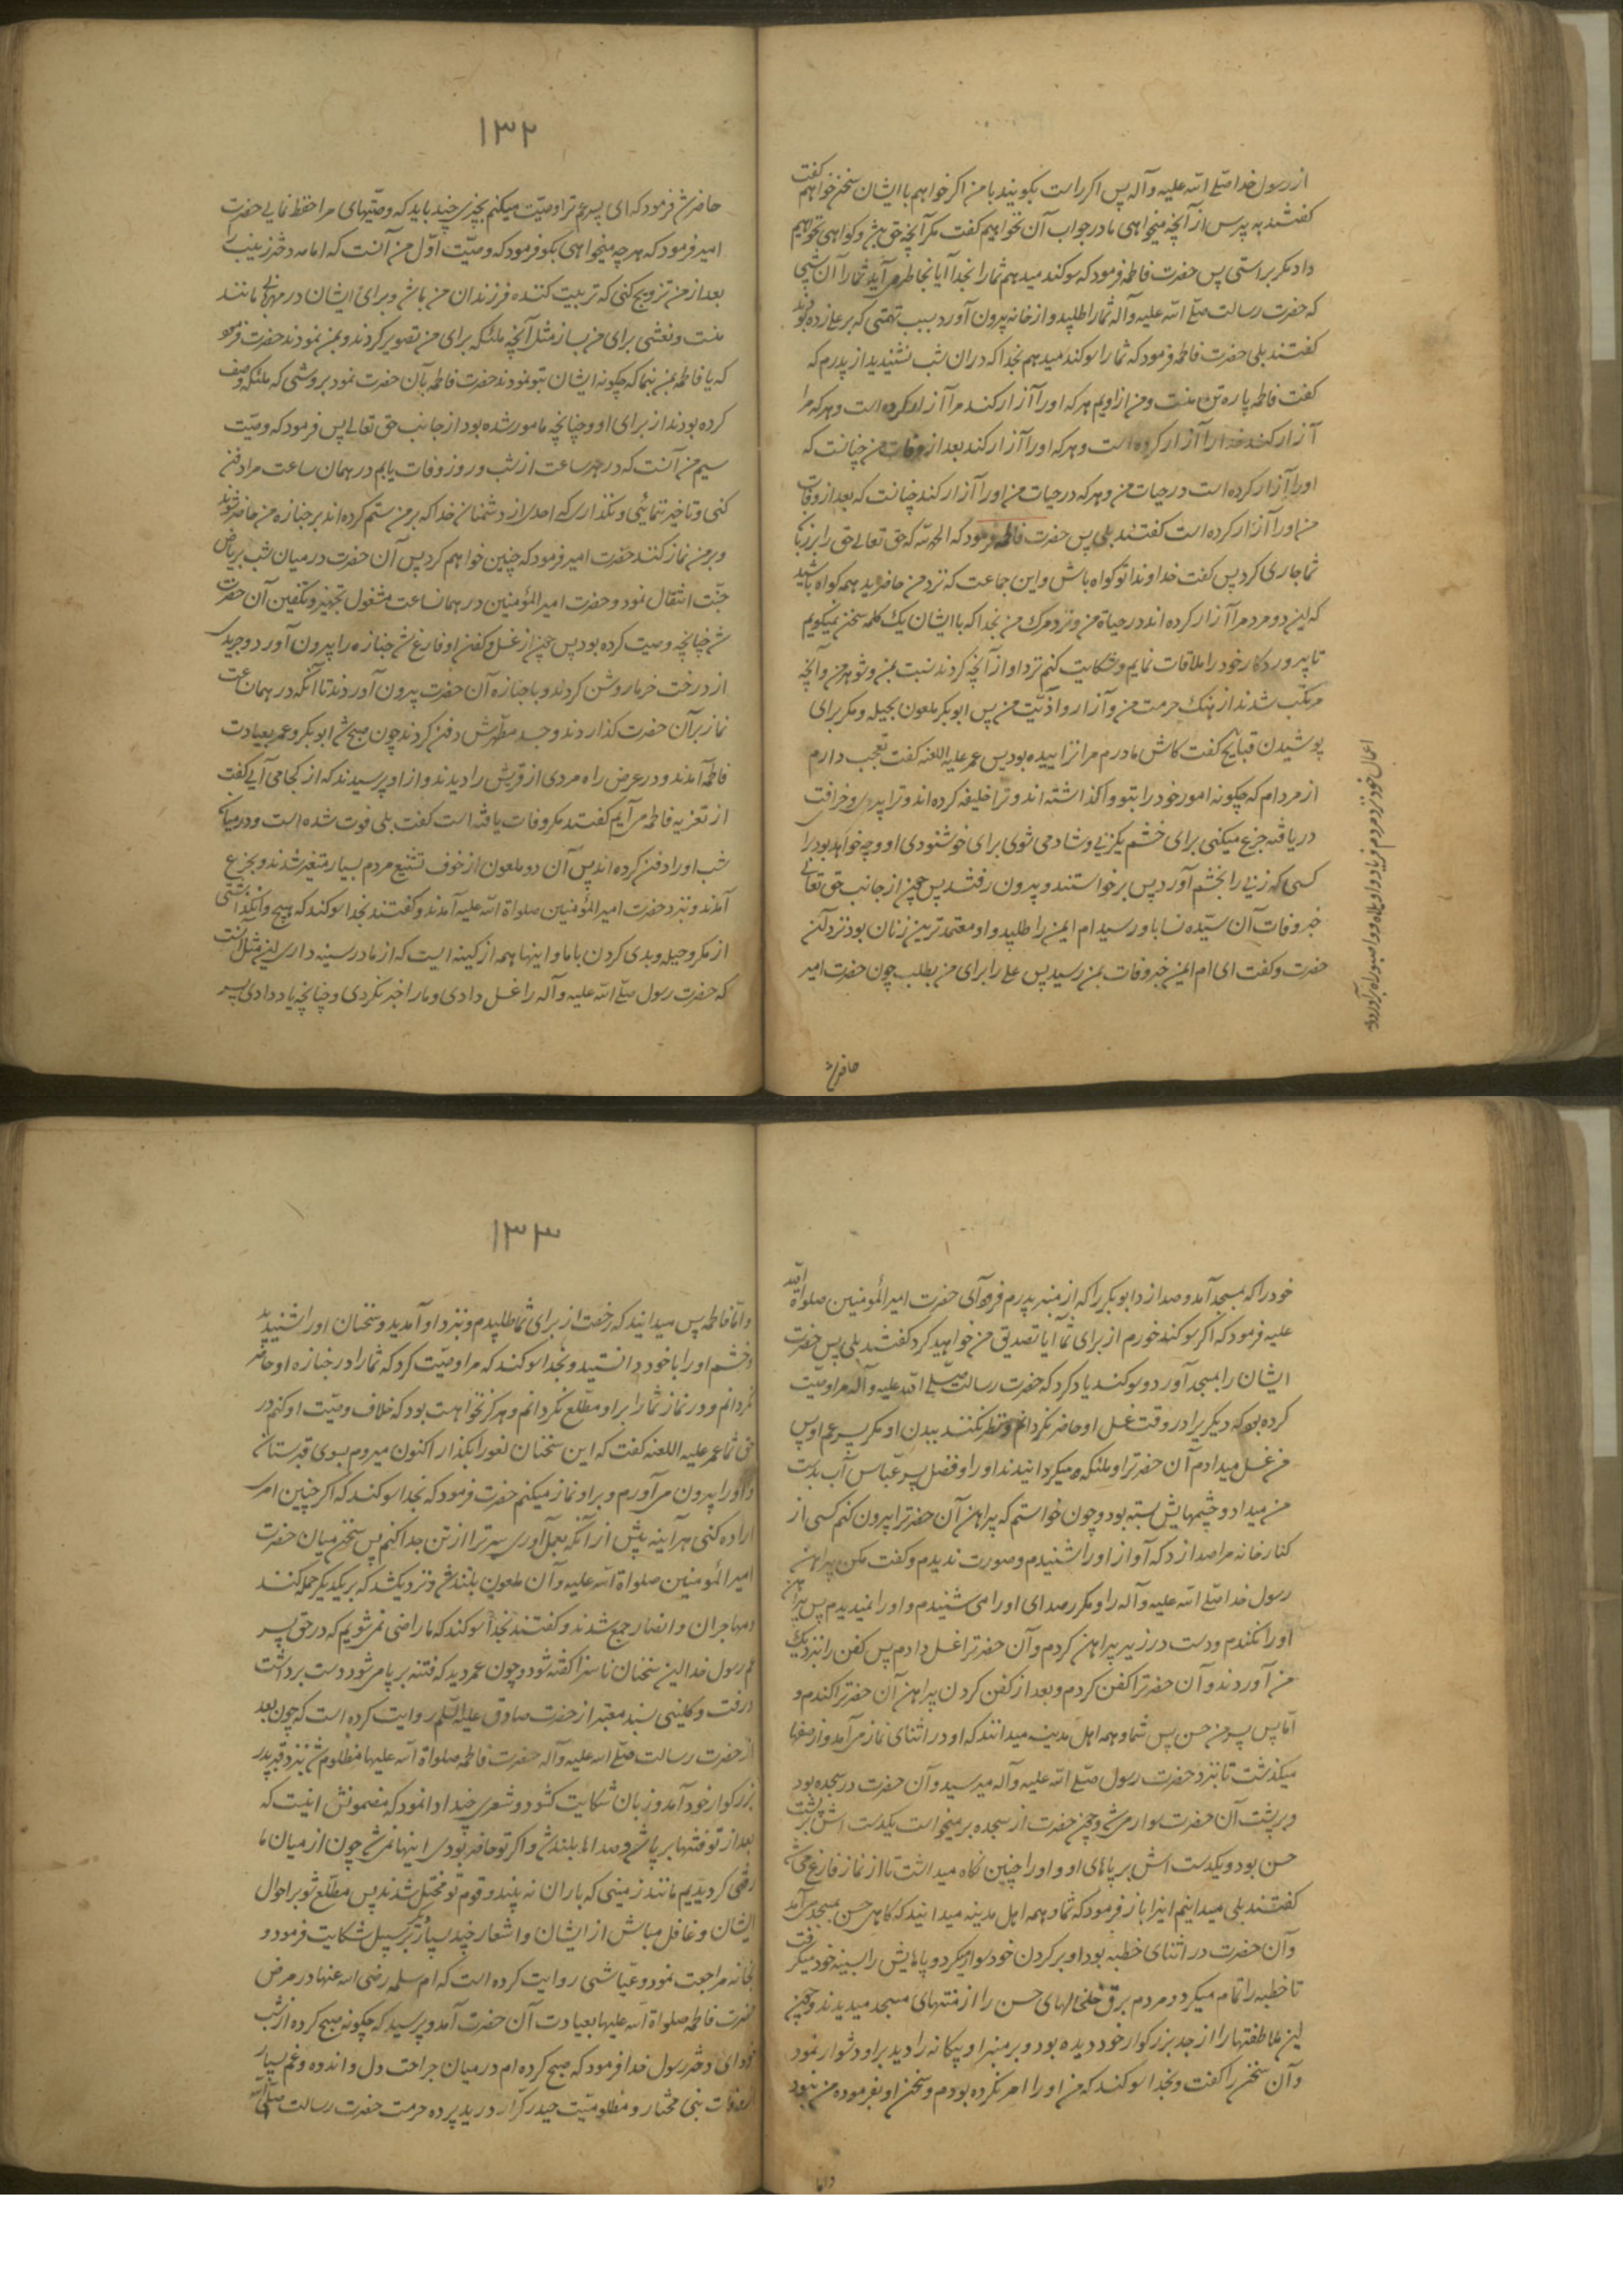 از رسول خدا صلّے اللّه علیه و آله پس اکر راست بکویند با من اکر خواهم با ایشان سخن خواهم کفت
کفتند به پرس از آنچه میخواهی ما در جواب آن نخواهیم کفت مکر آنچه حق باشد و کواهی نخواهیم
داد مکر براستی پس حضرت فاطمه فرمود که سوکند میدهم شما را بخدا آیا بخاطر می آید شما را آن شبی
که حضرت رسالت صلّے اللّه علیه و آله شما را طلبید و از خانه بیرون آورد بسبب تهمتی که بر علے زده بودند
کفتند بلی حضرت فاطمه فرمود که شما را سوکند میدهم بخدا که در ان شب شنیدید از پدرم که
کفت فاطمه پاره تن منست و من از اویم هر که او را آزار کند مرا آزار کرده است و هر که مرا
آزار کند خدا را آزار کرده است و هر که او را آزار کند بعد از وفات من چنانست که
او را آزار کرده است در حیات من و هر که در حیات من او را آزار کند چنانست که بعد از وفات
من او را آزار کرده است کفتند بلی پس حضرت فاطمه فرمود که الحمد للّه که حق تعالی حق را بر زبان
شما جاری کرد پس کفت خداوندا تو کواه باش و این جماعت که نزد من حاضرید همه کواه باشید
که این دو مرد مرا آزار کرده اند در حیاة من و نزد مرک من بخدا که با ایشان یک کلمه سخن نمیکویم
تا پروردکار خود را ملاقات نمایم و شکایت کنم نزد او از آنچه کردند نسبت بمن و شوهر من و آنچه
مرتکب شدند از هتک حرمت من و آزار و اذیّت من پس ابوبکر ملعون بحیله و مکر برای
پوشیدن قبایح کفت کاش مادرم مرا نزاییده بود پس عمر علیه اللعنه کفت تعجب دارم
از مردم که چکونه امور خود را بتو واکذاشته اند و ترا خلیفه کرده اند و ترا پیری و خرافت
دریافته جزع میکنی برای خشم یکزنی و شاد می شوی برای خوشنودی او و چه خواهد بود را
کسی که زنی را بخشم آورد پس برخواستند و بیرون رفتند پس چون از جانب حق تعالے
خبر وفات آن سیّده نسا باو رسید ام ایمن را طلبید و او معتمد ترین زنان بود نزد آن
حضرت و کفت ای ام ایمن خبر وفات بمن رسید پس علے را برای من بطلب چون حضرت امیر
حاضر شد
۱۳۲
حاضر شد فرمود که ای پسر عم ترا وصیّت میکنم بچیزی چند باید که وصیّتهای مرا حفظ نمایی حضرت
امیر فرمود که هر چه میخواهی بکو فرمود که وصیّت اوّل من آنست که امامه دختر زینب را
بعد از من تزویج کنی که تربیت کننده فرزندان من باشد و برای ایشان در مهربانی مانند
منست و نعشی برای من بساز مثل آنچه ملئکه برای من تصویر کردند و بمن نمودند حضرت فرمود
که یا فاطمه بمن بنما که چکونه ایشان بتو نمودند حضرت فاطمه بآن حضرت نمود بروشی که ملئکه وصف
کرده بودند از برای او و چنانچه مامور شده بود از جانب حق تعالے پس فرمود که وصیّت
سیم من آنست که در هر ساعت از شب و روز وفات یابم در همان ساعت مرا دفن
کنی و تاخیر ننمائی و نکذاری که احدی از دشمنان خدا که بر من ستم کرده اند بر جنازه من حاضر شوند
و بر من نماز کنند حضرت امیر فرمود که چنین خواهم کرد پس آن حضرت در میان شب بریاض
جنّت انتقال نمود و حضرت امیر المؤمنین در همانساعت مشغول تجهیز و تکفین آن حضرت
شد چنانچه وصیت کرده بود پس چون از غسل و کفن او فارغ شد جنازه را بیرون آورد و جریدی
از درخت خرما روشن کردند و با جنازه آن حضرت بیرون آوردند تا آنکه در همان ساعت
نماز بر آن حضرت کذاردند و جسد مطهّرش دفن کردند چون صبح شد ابوبکر و عمر بعیادت
فاطمه آمدند و در عرض راه مردی از قریش را دیدند و از او پرسیدند که از کجا می آیی کفت
از تعزیه فاطمه می آیم کفتند مکر وفات یافته است کفت بلی فوت شده است و در میان
شب او را دفن کرده اند پس آن دو ملعون از خوف تشنیع مردم بسیار متغیر شدند و بجزع
آمدند و نزد حضرت امیر المؤمنین صلواة اللّه علیه آمدند و کفتند بخدا سوکند که هیچ وا نکذاشتی
از مکر و حیله و بدی کردن با ما و اینها همه از کینه ایست که از ما در سینه داری این مثل آنست
که حضرت رسول صلّے اللّه علیه و آله را غسل دادی و ما را خبر نکردی و چنانچه یاد دادی پسر
خود را که بمسجد آمد و صدا زد ابوبکر را که از منبر پدرم فرود آی حضرت امیر المؤمنین صلواة اللّه
علیه فرمود که اکر سوکند خورم از برای شما آیا تصدیق من خواهید کرد کفتند بلی پس حضرت
ایشان را بمسجد آورد و سوکند یاد کرد که حضرت رسالت صلّے اللّه علیه و آله مرا وصیّت
کرده بود که دیکری را در وقت غسل او حاضر نکردانم و نظر نکنند ببدن او مکر پسر عم او پس
من غسل میدادم آن حضرترا و ملئکه میکردانیدند او را و فضل پسر عبّاس آب بدست
من میداد و چشمهایش بسته بود و چون خواستم که پیراهن آن حضرترا بیرون کنم کسی از
کنار خانه مرا صدا زد که آواز او را شنیدم و صورت ندیدم و کفت مکن پیراهن
رسول خدا صلّے اللّه علیه و آله را و مکرر صدای او را می شنیدم و او را نمیدیدم پس پیراهن
او را نکندم و دست در زیر پیراهن کردم و آن حضرترا غسل دادم پس کفن را بنزدیک
من آوردند و آن حضرترا کفن کردم و بعد از کفن کردن پیراهن آن حضرترا کندم و
امّا پس پسر من حسن پس شما و همه اهل مدینه میدانند که او در اثنای نماز می آمد و از صفها
میکذشت تا بنزد حضرت رسول صلّے اللّه علیه و آله میرسید و آن حضرت در سجده بود
و بر پشت آن حضرت سوار می شد و چون حضرت از سجده بر میخواست یکدست اش بر پشت
حسن بود و یکدست اش بر پاهای او و او را چنین نکاه میداشت تا از نماز فارغ می شد
کفتند بلی میدانیم اینرا باز فرمود که شما و همه اهل مدینه میدانید که کاهی حسن بمسجد می آمد
و آن حضرت در اثنای خطبه بود او بر کردن خود سوار میکرد و پاهایش را بسینه خود میکرفت
تا خطبه را تمام میکرد و مردم برق خلخالهای حسن را از منتهای مسجد میدیدند و چون
این علطفتها را از جد بزرکوار خود دیده بود و بر منبر او بیکانه را دید بر او دشوار نمود
و آن سخن را کفت و بخدا سوکند که من او را امر نکرده بودم و سخن او بفرموده من نبود
و اما
۱۳۳
و امّا فاطمه پس میدانید که رخصت از برای شما طلبیدم و بنزد او آمدید و سخنان او را شنیدید
و خشم او را با خود دانستید و بخدا سوکند که مرا وصیّت کرد که شما را در جنازه او حاضر
نکردانم و در نماز شما را بر او مطّلع نکردانم و هرکز نخواهست بود که خلاف وصیّت او کنم در
حق شما عمر علیه اللعنه کفت که این سخنان لغو را بکذار اکنون میروم بسوی قبرستان
و او را بیرون می آورم و بر او نماز میکنم حضرت فرمود که بخدا سوکند که اکر چنین امری
اراده کنی هر آینه پیش از آنکه بعمل آوری سر ترا از تن جدا کنم پس سخن میان حضرت
امیر المؤمنین صلواة اللّه علیه و آن ملعون بلند شد و نزدیک شد که بر یکدیکر حمله کنند
و مهاجران و انصار جمع شدند و کفتند بخدا سوکند که ما راضی نمی شویم که در حق پسر
عم رسول خدا این سخنان ناسزا کفته شود و چون عمر دید که فتنه بر پا می شود دست برداشت
و رفت و کلینی بسند معتبر از حضرت صادق علیه السّلم روایت کرده است که چون بعد
از حضرت رسالت صلّے اللّه علیه و آله حضرت فاطمه صلواة اللّه علیها مظلوم شد بنزد قبر پدر
بزرکوار خود آمد و زبان شکایت کشود و شعری چند ادا نمود که مضمونش اینست که
بعد از تو فتنها بر پا شد و صداها بلند شد و اکر تو حاضر بودی اینها نمی شد چون از میان ما
رفتی کردیدیم مانند زمینی که باران نه بیند و قوم تو مختل شدند پس مطّلع شو بر احوال
ایشان و غافل مباش از ایشان و اشعار چند بسیار بر سبیل شکایت فرمود و
بخانه مراجعت نمود و عیّاشی روایت کرده است که ام سلمه رضی اللّه عنها در مرض
حضرت فاطمه صلواة اللّه علیها بعیادت آن حضرت آمد و پرسید که چکونه صبح کرده از شب
خود ای دختر رسول خدا فرمود که صبح کرده ام در میان جراحت دل و اندوه و غم بسیار
از وفات نبی مختار و مظلومیّت حیدر کرّار دریده پرده حرمت حضرت رسالت صلّے اللّه